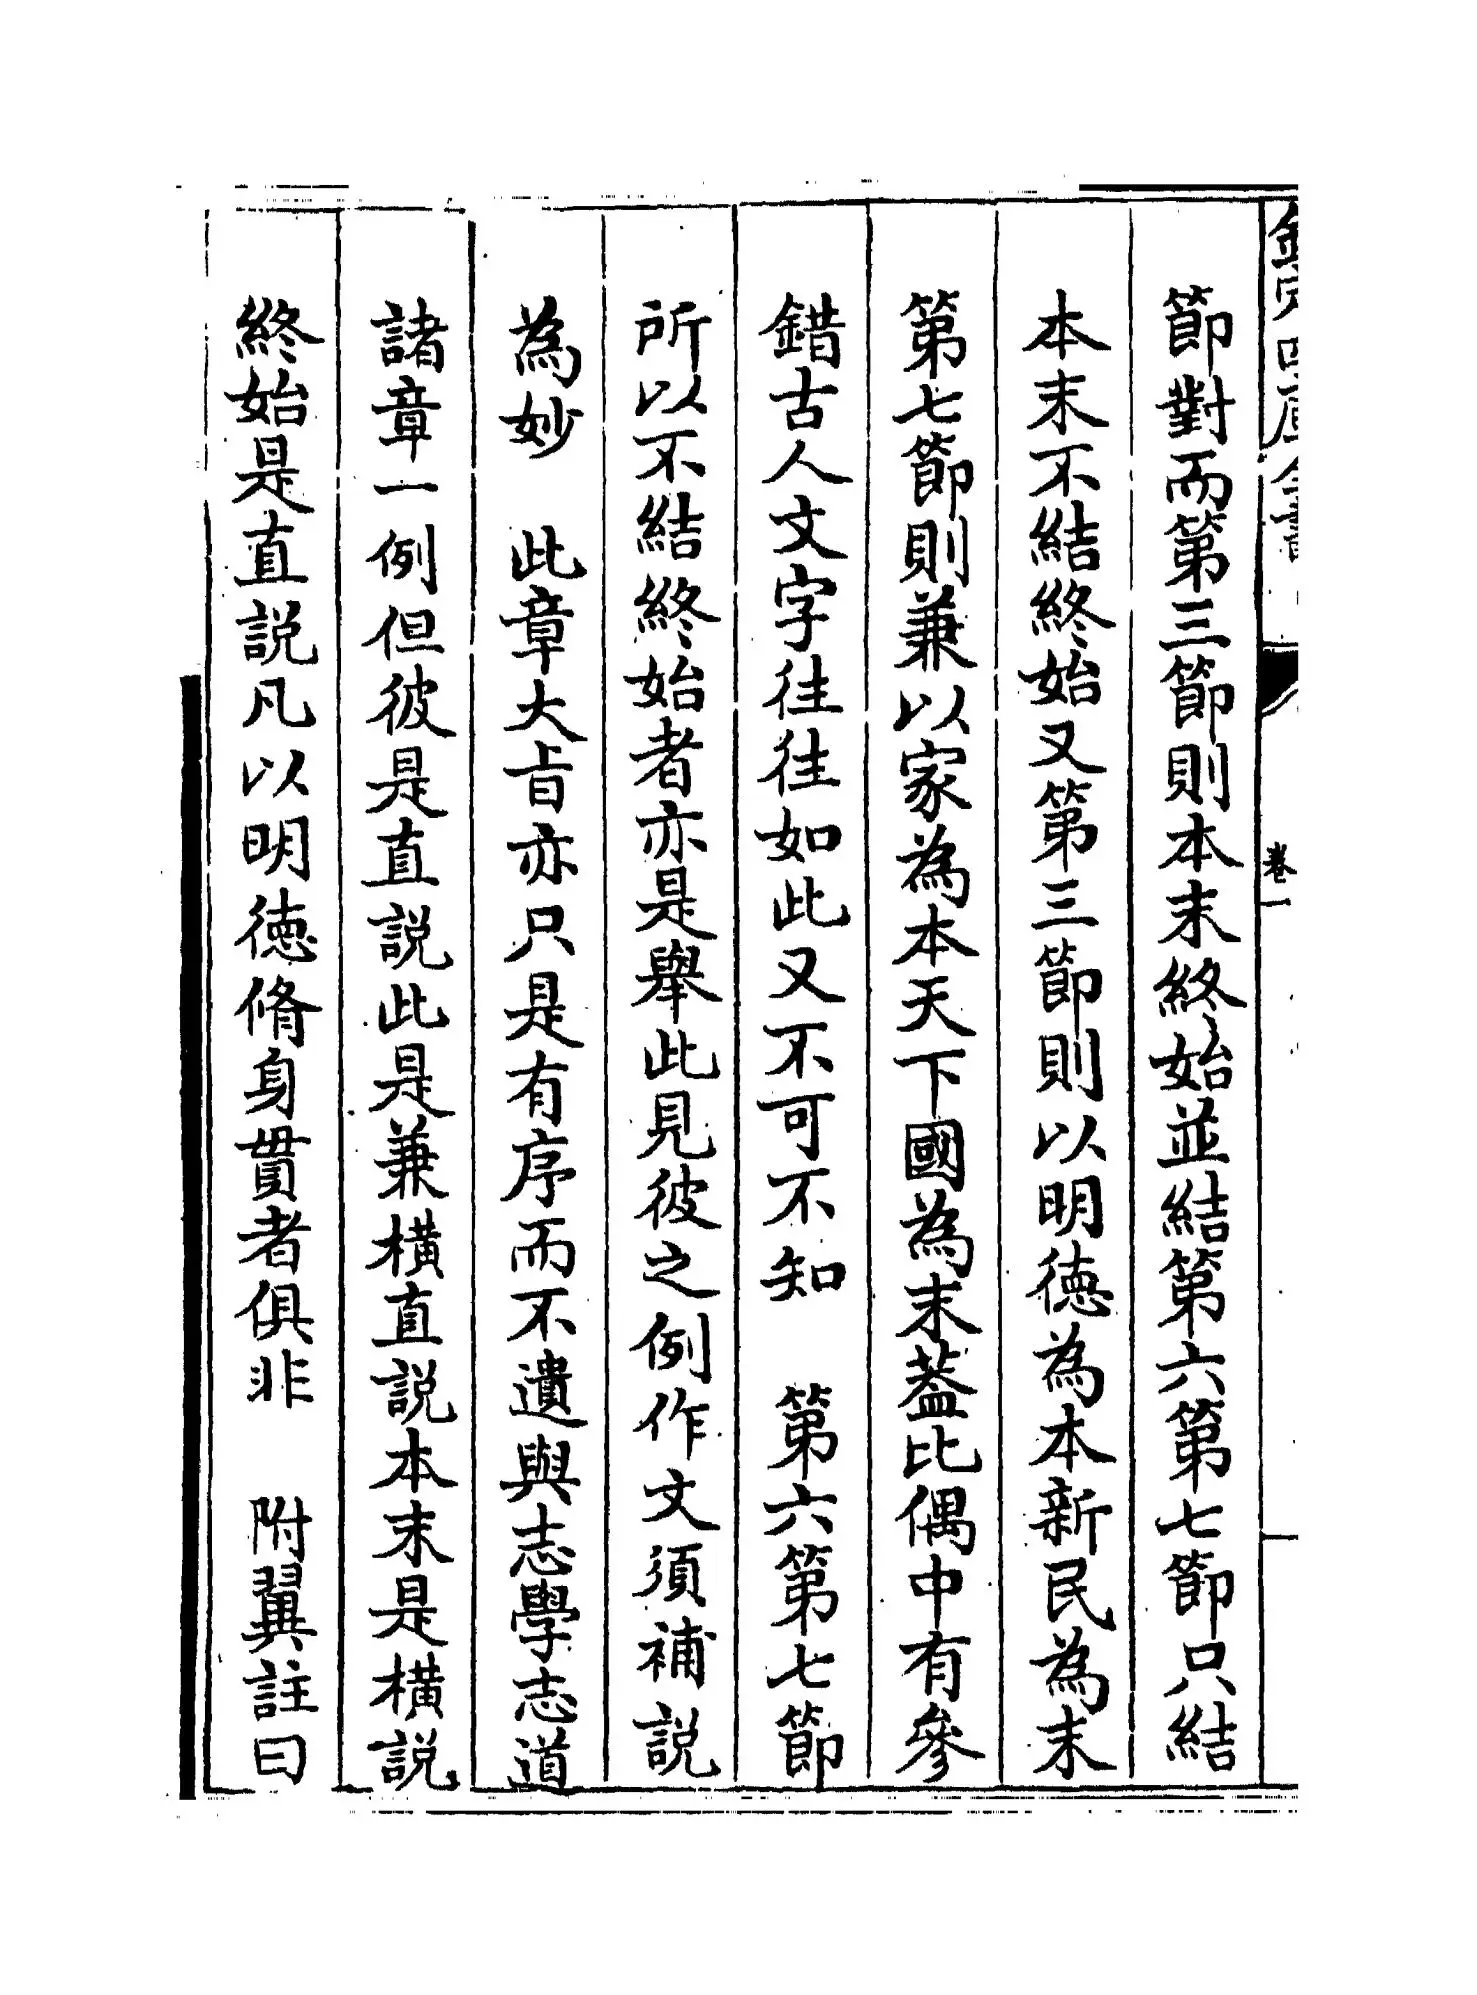 欽定四庫全書
卷一
節對而第三節則本末終始並結第六第七節只結
本末不結終始又第三節則以明德為本新民為末
第七節則兼以家為本天下國為末蓋比偶中有參
錯古人文字往往如此又不可不知　第六第七節
所以不結終始者亦是舉此見彼之例作文須補說
為妙　此章大旨亦只是有序而不遺與志學志道
諸章一例但彼是直說此是兼橫直說本末是橫說
終始是直說凡以明德脩身貫者俱非　附翼註曰